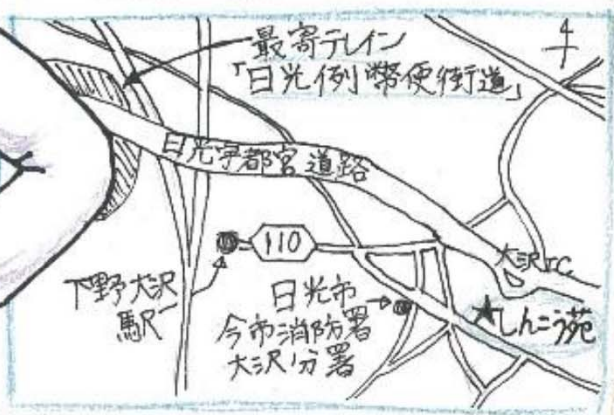 最寄テレイン
「日光例幣使街道」
日光宇都宮道路
110
大沢IC
下野大沢
駅
日光市
今市消防署
大沢分署
★しんこう苑